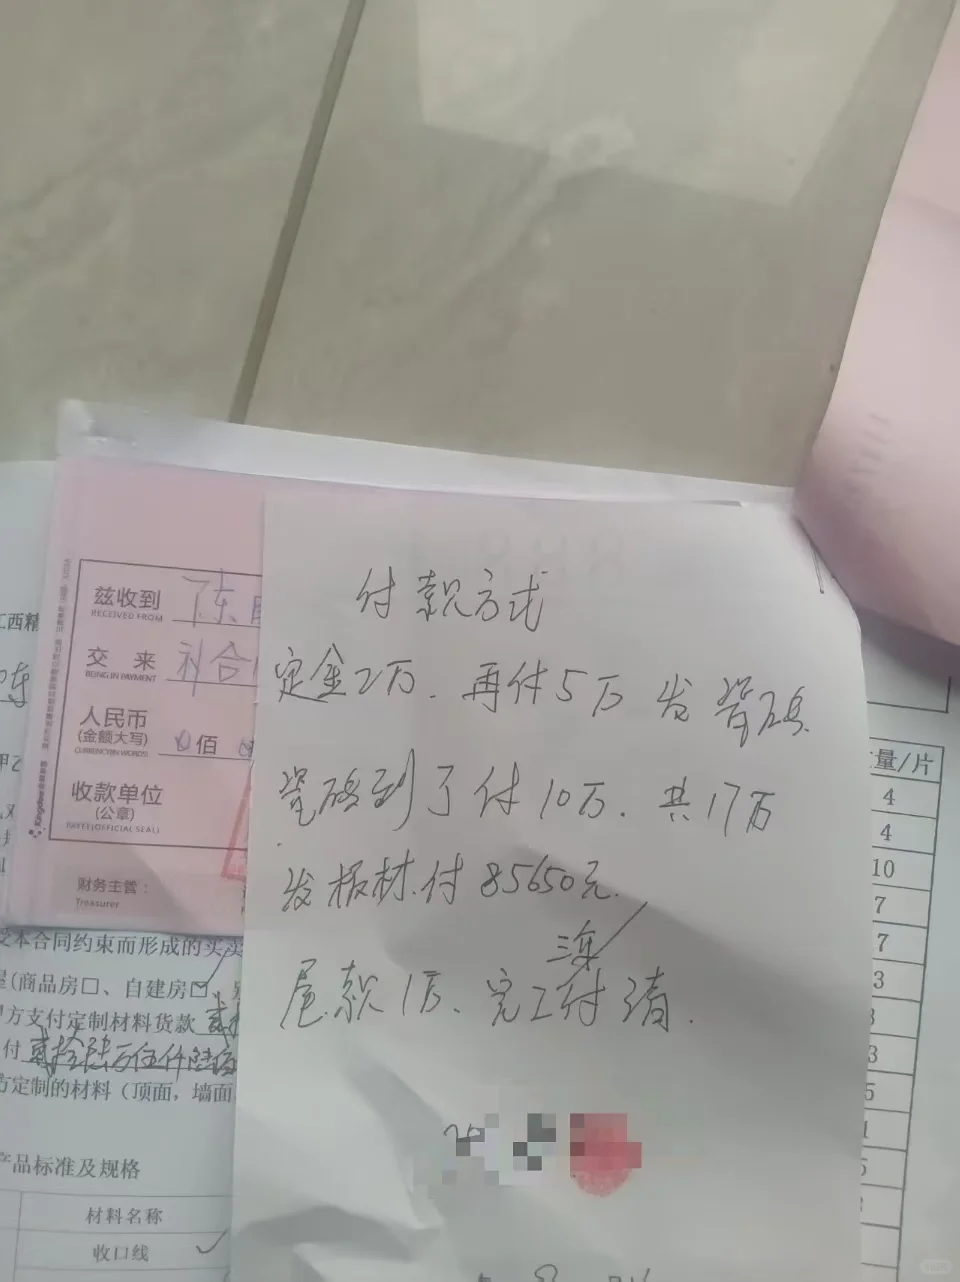 付款方式
定金2万. 再付5万 发瓷砖
瓷砖到了付10万. 共17万
发板材.付85650元.
三年
尾款1万、完工付清.
兹收到 陈
RECEIVED FROM
交 来 补合
BEING IN PAYMENT
人民币
(金额大写) 佰
CURRENCY(IN WORDS)
收款单位
(公章)
PAYEE(OFFICIAL SEAL)
财务主管：
Treasurer
江西精
受本合同约束而形成的买卖
(商品房□、自建房☑、
方支付定制材料货款 贰
付 贰拾陆万伍仟陆佰
方定制的材料（顶面，墙面
产品标准及规格
材料名称
收口线 ✓
量/片
4
4
10
7
7
3
3
5